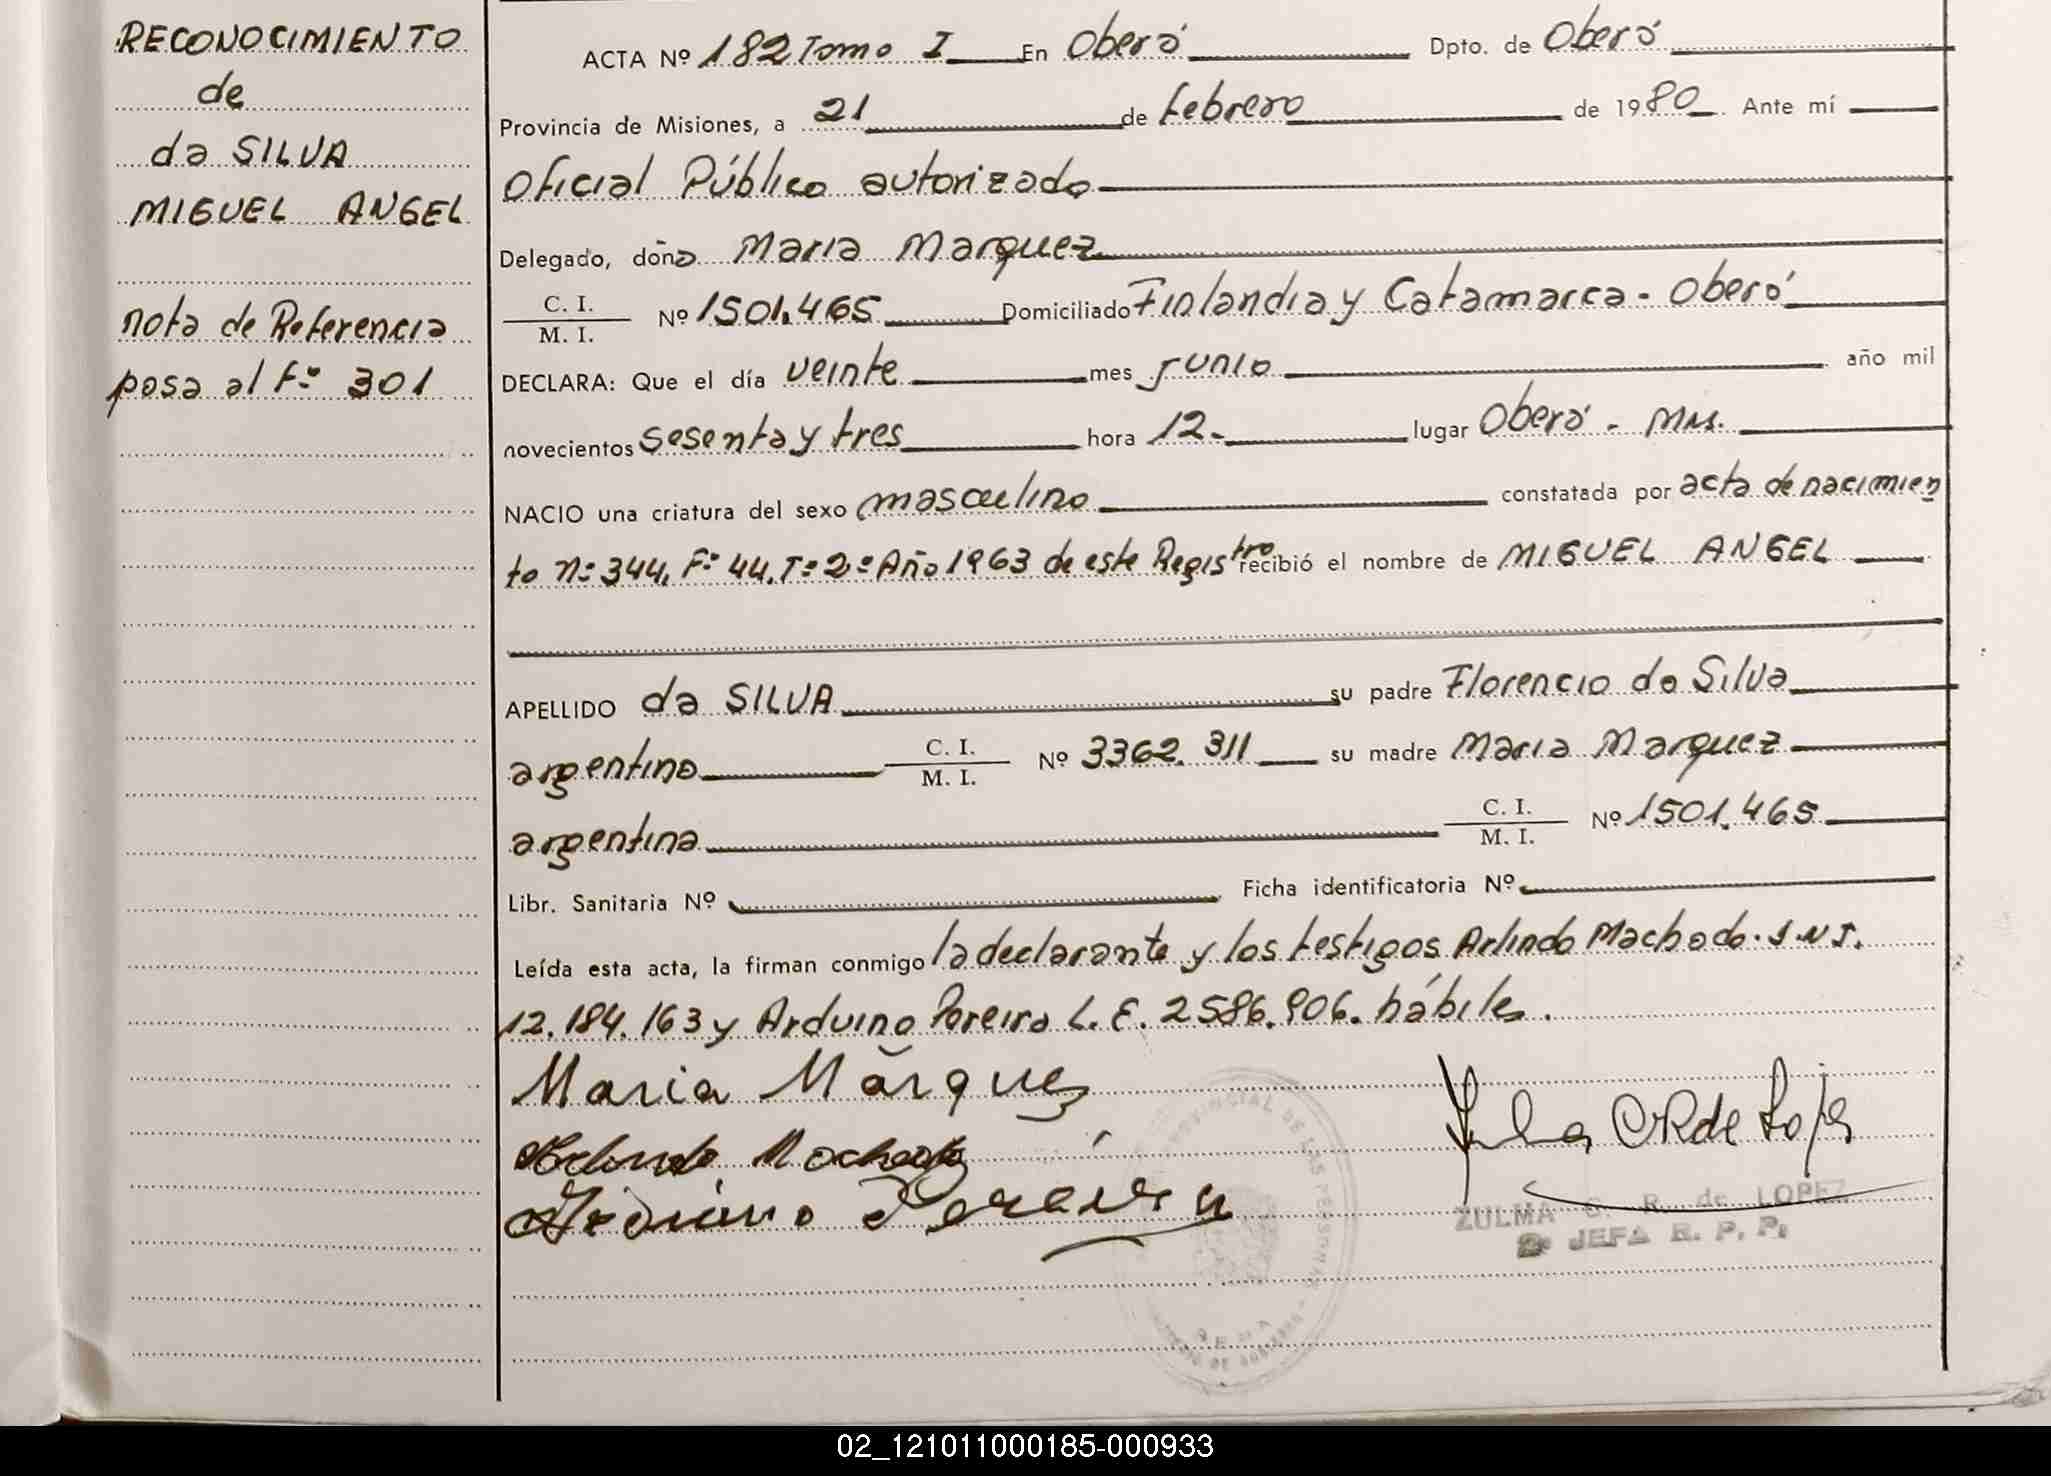 RECONOCIMIENTO
de
da SILVA
MIGUEL ANGEL
nota de Referencia
pasa al Fº 301
ACTA Nº 182 Tomo I En Oberá Dpto. de Oberá
Provincia de Misiones, a 21 de Febrero de 1980 Ante mí
Oficial Público autorizado
Delegado, doña Maria Marquez
C. I.
M. I. Nº 1501.465 Domiciliado Finlandia y Catamarca - Oberá
DECLARA: Que el día veinte mes junio año mil
novecientos sesenta y tres hora 12- lugar Oberá - Mns.
NACIO una criatura del sexo masculino constatada por acta de nacimien
to Nº 344, Fº 44, Tº 2º Año 1963 de este Registro recibió el nombre de MIGUEL ANGEL
APELLIDO da SILVA su padre Florencio da Silva
argentino C. I.
M. I. Nº 3362.311 su madre Maria Marquez
argentina C. I.
M. I. Nº 1501.465
Libr. Sanitaria Nº Ficha identificatoria Nº
Leída esta acta, la firman conmigo la declarante y los testigos Arlindo Machado. D.N.I.
12.184.163 y Arduino Pereira L. E. 2586.906. hábiles.
Maria Márquez
Arlindo Machado
Arduino Pereira
ZULMA C. R. de LOPEZ
2ª JEFA R. P. P.
02_121011000185-000933